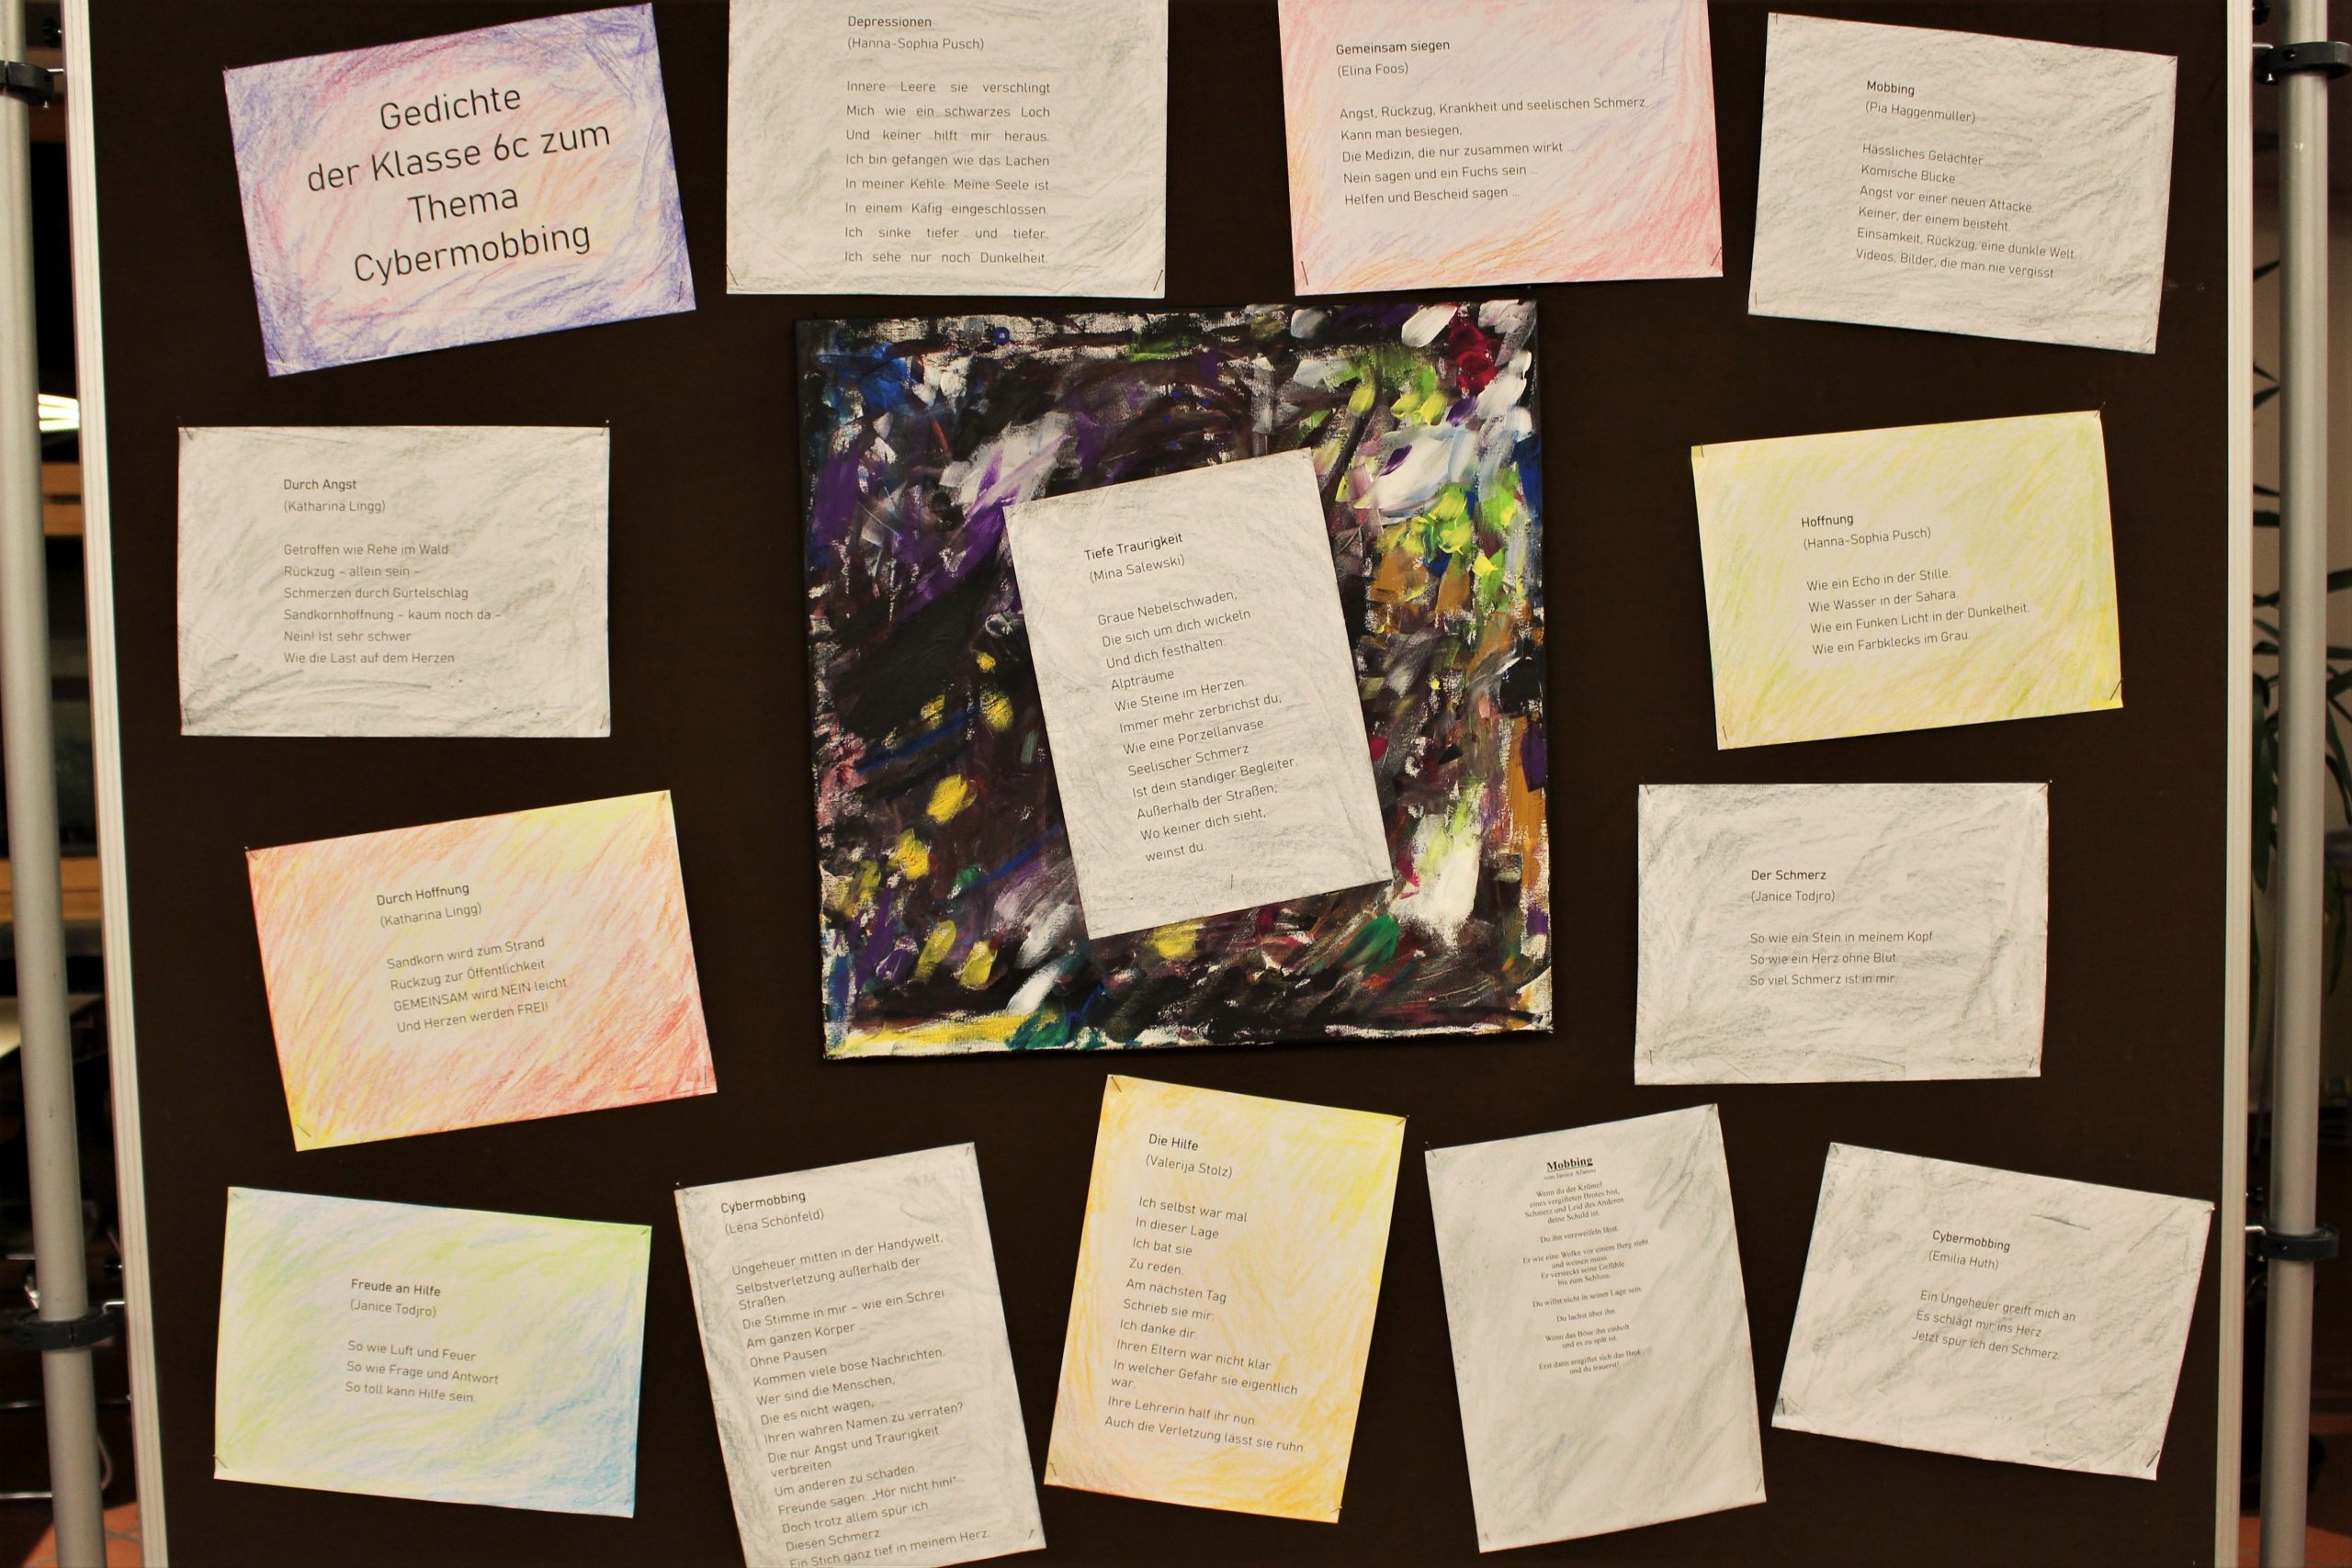 Gedichte
der Klasse 6c zum
Thema
Cybermobbing
Depressionen
(Hanna-Sophia Pusch)
Innere Leere sie verschlingt
Mich wie ein schwarzes Loch
Und keiner hilft mir heraus.
Ich bin gefangen wie das Lachen
In meiner Kehle. Meine Seele ist
In einem Käfig eingeschlossen.
Ich sinke tiefer und tiefer.
Ich sehe nur noch Dunkelheit.
Gemeinsam siegen
(Elina Foos)
Angst, Rückzug, Krankheit und seelischen Schmerz
Kann man besiegen,
Die Medizin, die nur zusammen wirkt ...
Nein sagen und ein Fuchs sein ...
Helfen und Bescheid sagen ...
Mobbing
(Pia Haggenmüller)
Hässliches Gelächter ...
Komische Blicke ...
Angst vor einer neuen Attacke.
Keiner, der einem beisteht.
Einsamkeit, Rückzug, eine dunkle Welt.
Videos, Bilder, die man nie vergisst.
Durch Angst
(Katharina Lingg)
Getroffen wie Rehe im Wald
Rückzug – allein sein –
Schmerzen durch Gürtelschlag
Sandkornhoffnung – kaum noch da –
Nein! Ist sehr schwer
Wie die Last auf dem Herzen
Tiefe Traurigkeit
(Mina Salewski)
Graue Nebelschwaden,
Die sich um dich wickeln
Und dich festhalten.
Alpträume
Wie Steine im Herzen.
Immer mehr zerbrichst du,
Wie eine Porzellanvase.
Seelischer Schmerz
Ist dein ständiger Begleiter.
Außerhalb der Straßen;
Wo keiner dich sieht,
weinst du.
Hoffnung
(Hanna-Sophia Pusch)
Wie ein Echo in der Stille.
Wie Wasser in der Sahara.
Wie ein Funken Licht in der Dunkelheit.
Wie ein Farbklecks im Grau.
Durch Hoffnung
(Katharina Lingg)
Sandkorn wird zum Strand
Rückzug zur Öffentlichkeit
GEMEINSAM wird NEIN leicht
Und Herzen werden FREI!
Der Schmerz
(Janice Todjro)
So wie ein Stein in meinem Kopf
So wie ein Herz ohne Blut
So viel Schmerz ist in mir.
Freude an Hilfe
(Janice Todjro)
So wie Luft und Feuer
So wie Frage und Antwort
So toll kann Hilfe sein.
Cybermobbing
(Lena Schönfeld)
Ungeheuer mitten in der Handywelt,
Selbstverletzung außerhalb der
Straßen
Die Stimme in mir – wie ein Schrei
Am ganzen Körper ...
Ohne Pausen
Kommen viele böse Nachrichten.
Wer sind die Menschen,
Die es nicht wagen,
Ihren wahren Namen zu verraten?
Die nur Angst und Traurigkeit
verbreiten
Um anderen zu schaden
Freunde sagen: „Hör nicht hin!"
Doch trotz allem spür ich
Diesen Schmerz
Ein Stich ganz tief in meinem Herz.
Die Hilfe
(Valerija Stolz)
Ich selbst war mal
In dieser Lage
Ich bat sie
Zu reden.
Am nächsten Tag
Schrieb sie mir:
Ich danke dir.
Ihren Eltern war nicht klar
In welcher Gefahr sie eigentlich
war.
Ihre Lehrerin half ihr nun.
Auch die Verletzung lässt sie ruhn.
Mobbing
von Janice
Wenn du der Krümel
eines vergifteten Brotes bist,
Schmerz und Leid des Anderen
deine Schuld ist.
Du ihn verzweifeln lässt.
Er wie eine Wolke vor einem Berg steht
und weinen muss.
Er versteckt seine Gefühle
bis zum Schluss.
Du willst nicht in seiner Lage sein.
Du lachst über ihn.
Wenn das Böse ihn einholt
und es zu spät ist.
Erst dann entgiftet sich das Brot
und du trauerst!
Cybermobbing
(Emilia Huth)
Ein Ungeheuer greift mich an
Es schlägt mir ins Herz
Jetzt spür ich den Schmerz.